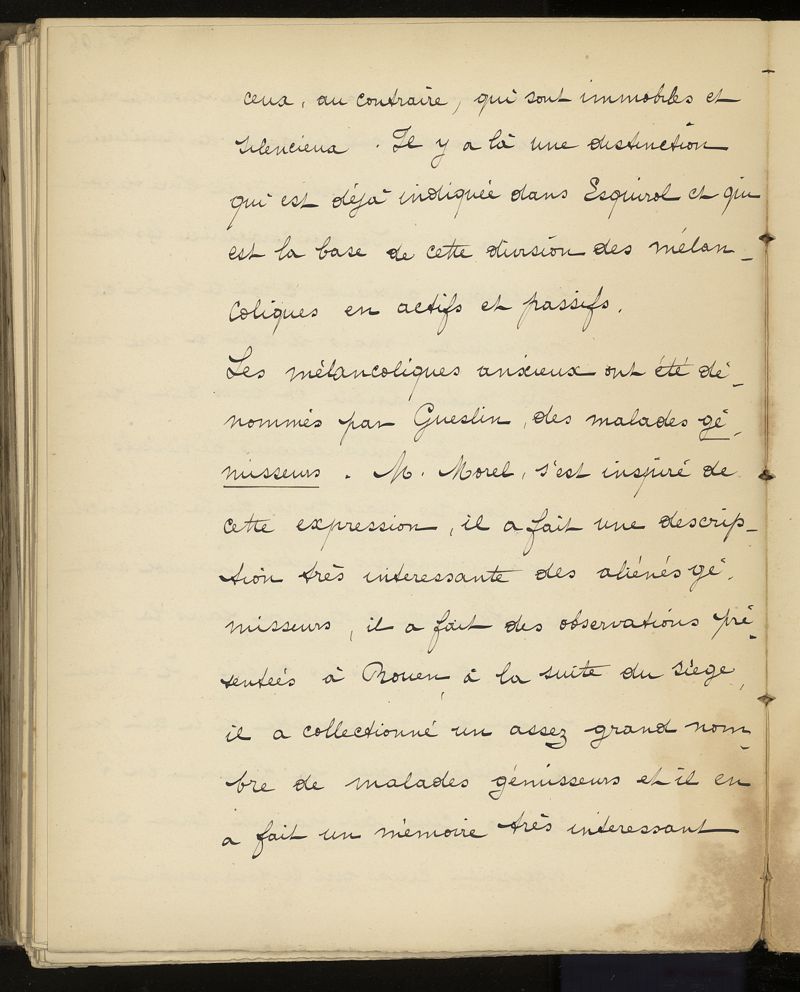 ceux, au contraire, qui sont immobiles et
silencieux. Il y a là une distinction
qui est déjà indiquée dans Esquirol et qui
est la base de cette division des mélan-
coliques en actifs et passifs.
Les mélancoliques anxieux ont été dé-
nommés par Gueslin, des malades gé-
misseurs. M. Morel, s'est inspiré de
cette expression, il a fait une descrip-
tion très interessante des aliénés gé-
misseurs, il a fait des observations pré-
sentées à Rouen, à la suite du siège,
il a collectionné un assez grand nom-
bre de malades gémisseurs et il en
a fait un mémoire très interessant